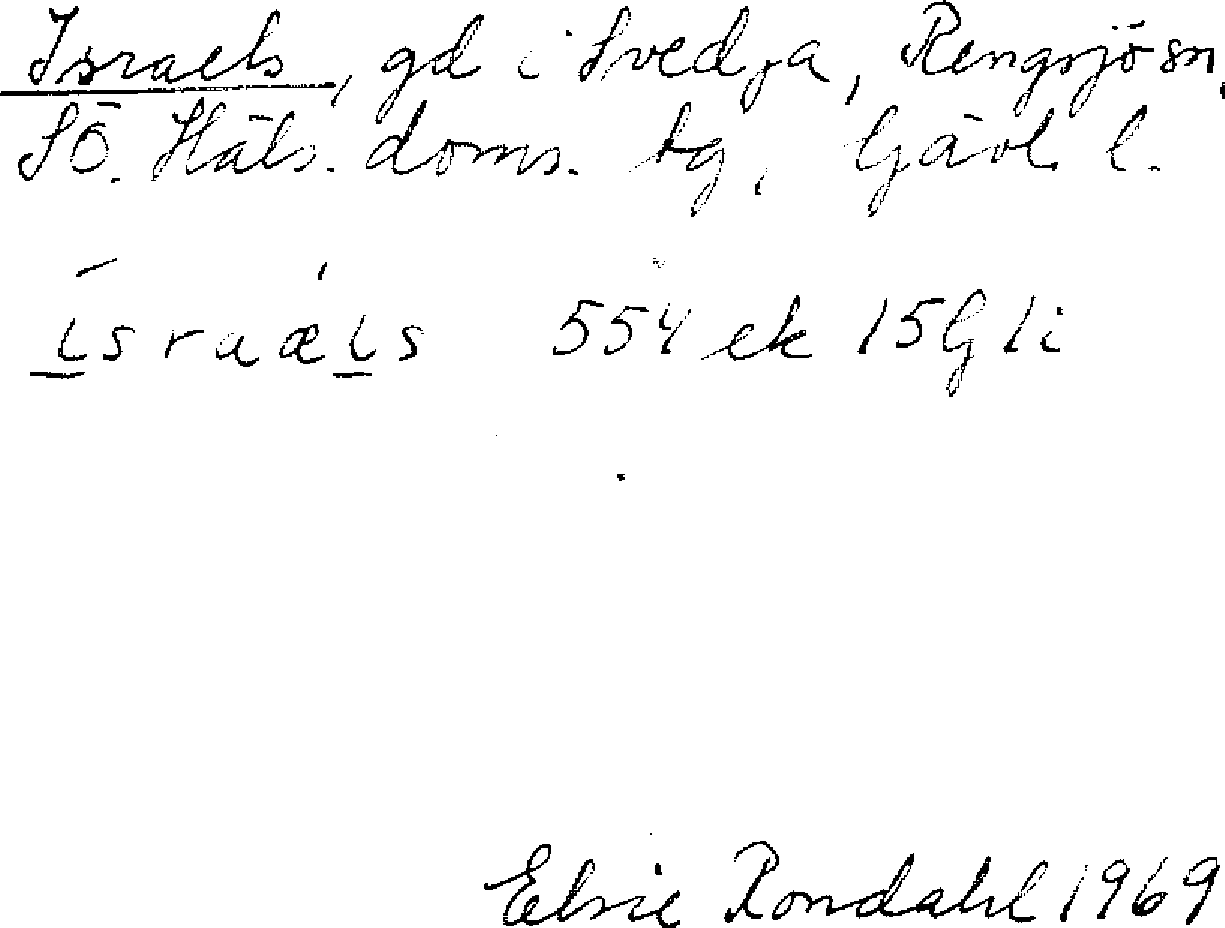 Israels, gd i Svedja, Rengsjö sn,
SÖ. Häls. doms. tg, Gävl. l.
ísraǽis 554 ek 15G 1i
Elsie Rondahl 1969